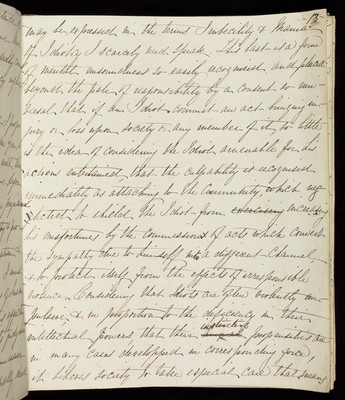 13
may be expressed in the terms Imbecility & Mania
of Idiotcy I scarcely need speak. This last is a form
of mental unsoundness so easily recognised and placed
beyond the pale of responsibility by a consent so uni-
versal that if an Idiot commit an act bringing in-
jury or loss upon society or any member of it, so little
is the idea of considering the Idiot amenable for his
actions entertained, that the culpability is recognised
immediately as attaching to the Community, which neg-
lected to shield the Idiot from increasing
his misfortunes by the commission of acts which convert
the sympathy due to himself into a different channel
& to protect itself from the effects of irresponsible
violence. Considering that Idiots are often violently im-
pulsive, & in proportion to the deficiency in their
intellectual powers, that their instinctive propensities are
in many cases developed in corresponding force,
it behoves society to take especial care that means